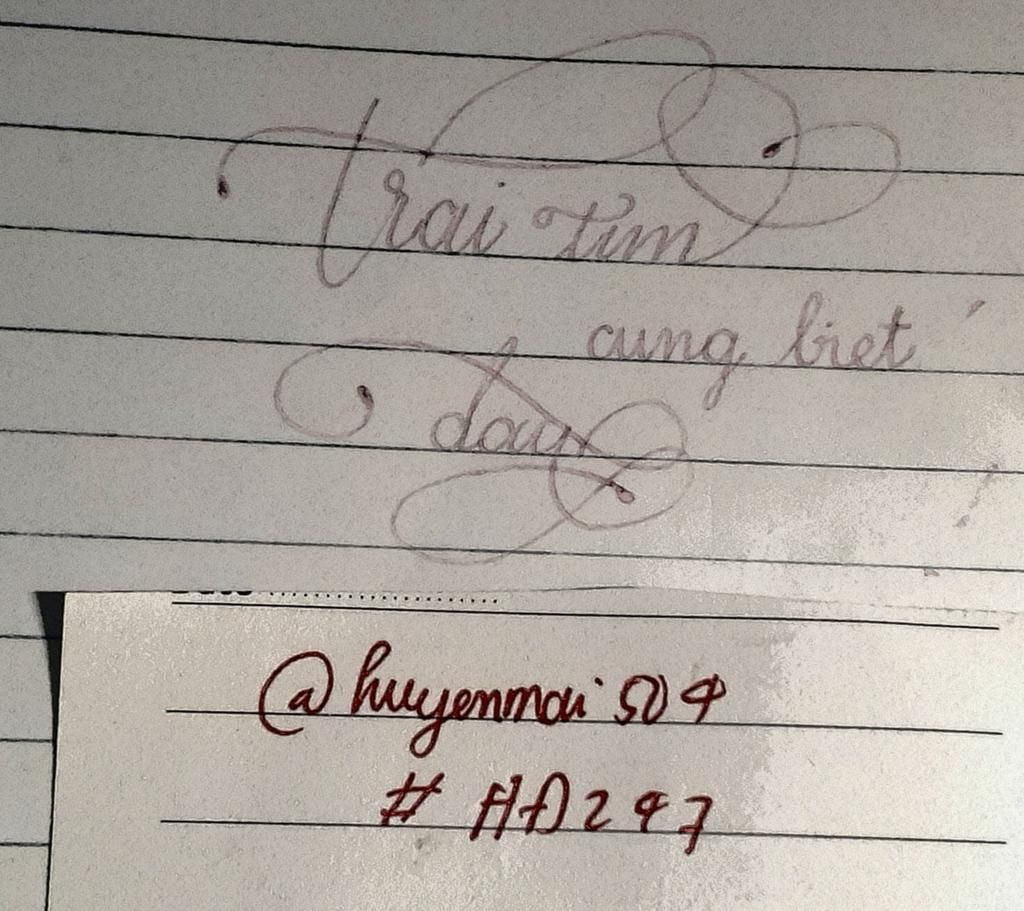 Trai tim
cung biet'
day
@huyenmai504
# HD247